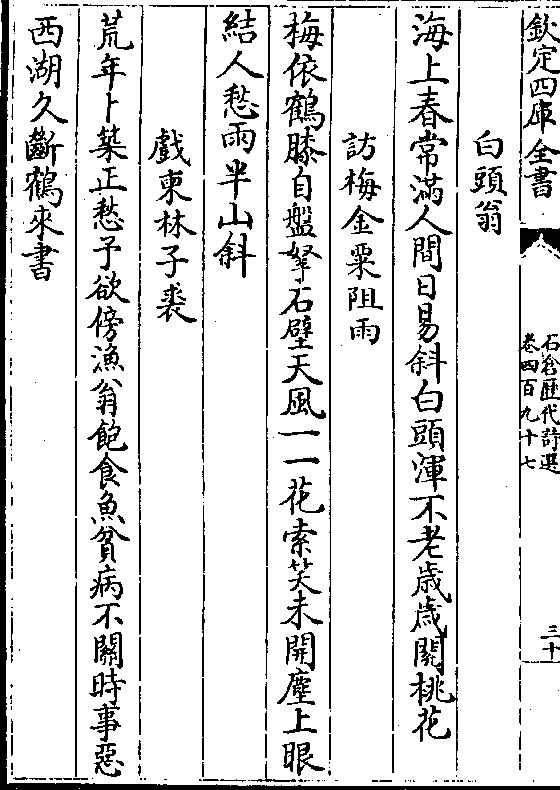 欽定四庫全書
石倉歷代詩選
卷四百九十七
三十
白頭翁
海上春常滿人間日易斜白頭渾不老歲歲鬭桃花
訪梅金粟阻雨
梅依鶴膝自盤拏石壁天風一一花索笑未開塵上眼
結人愁雨半山斜
戲柬林子裘
荒年卜築正愁予欲傍漁翁飽食魚貧病不關時事惡
西湖久斷鶴來書